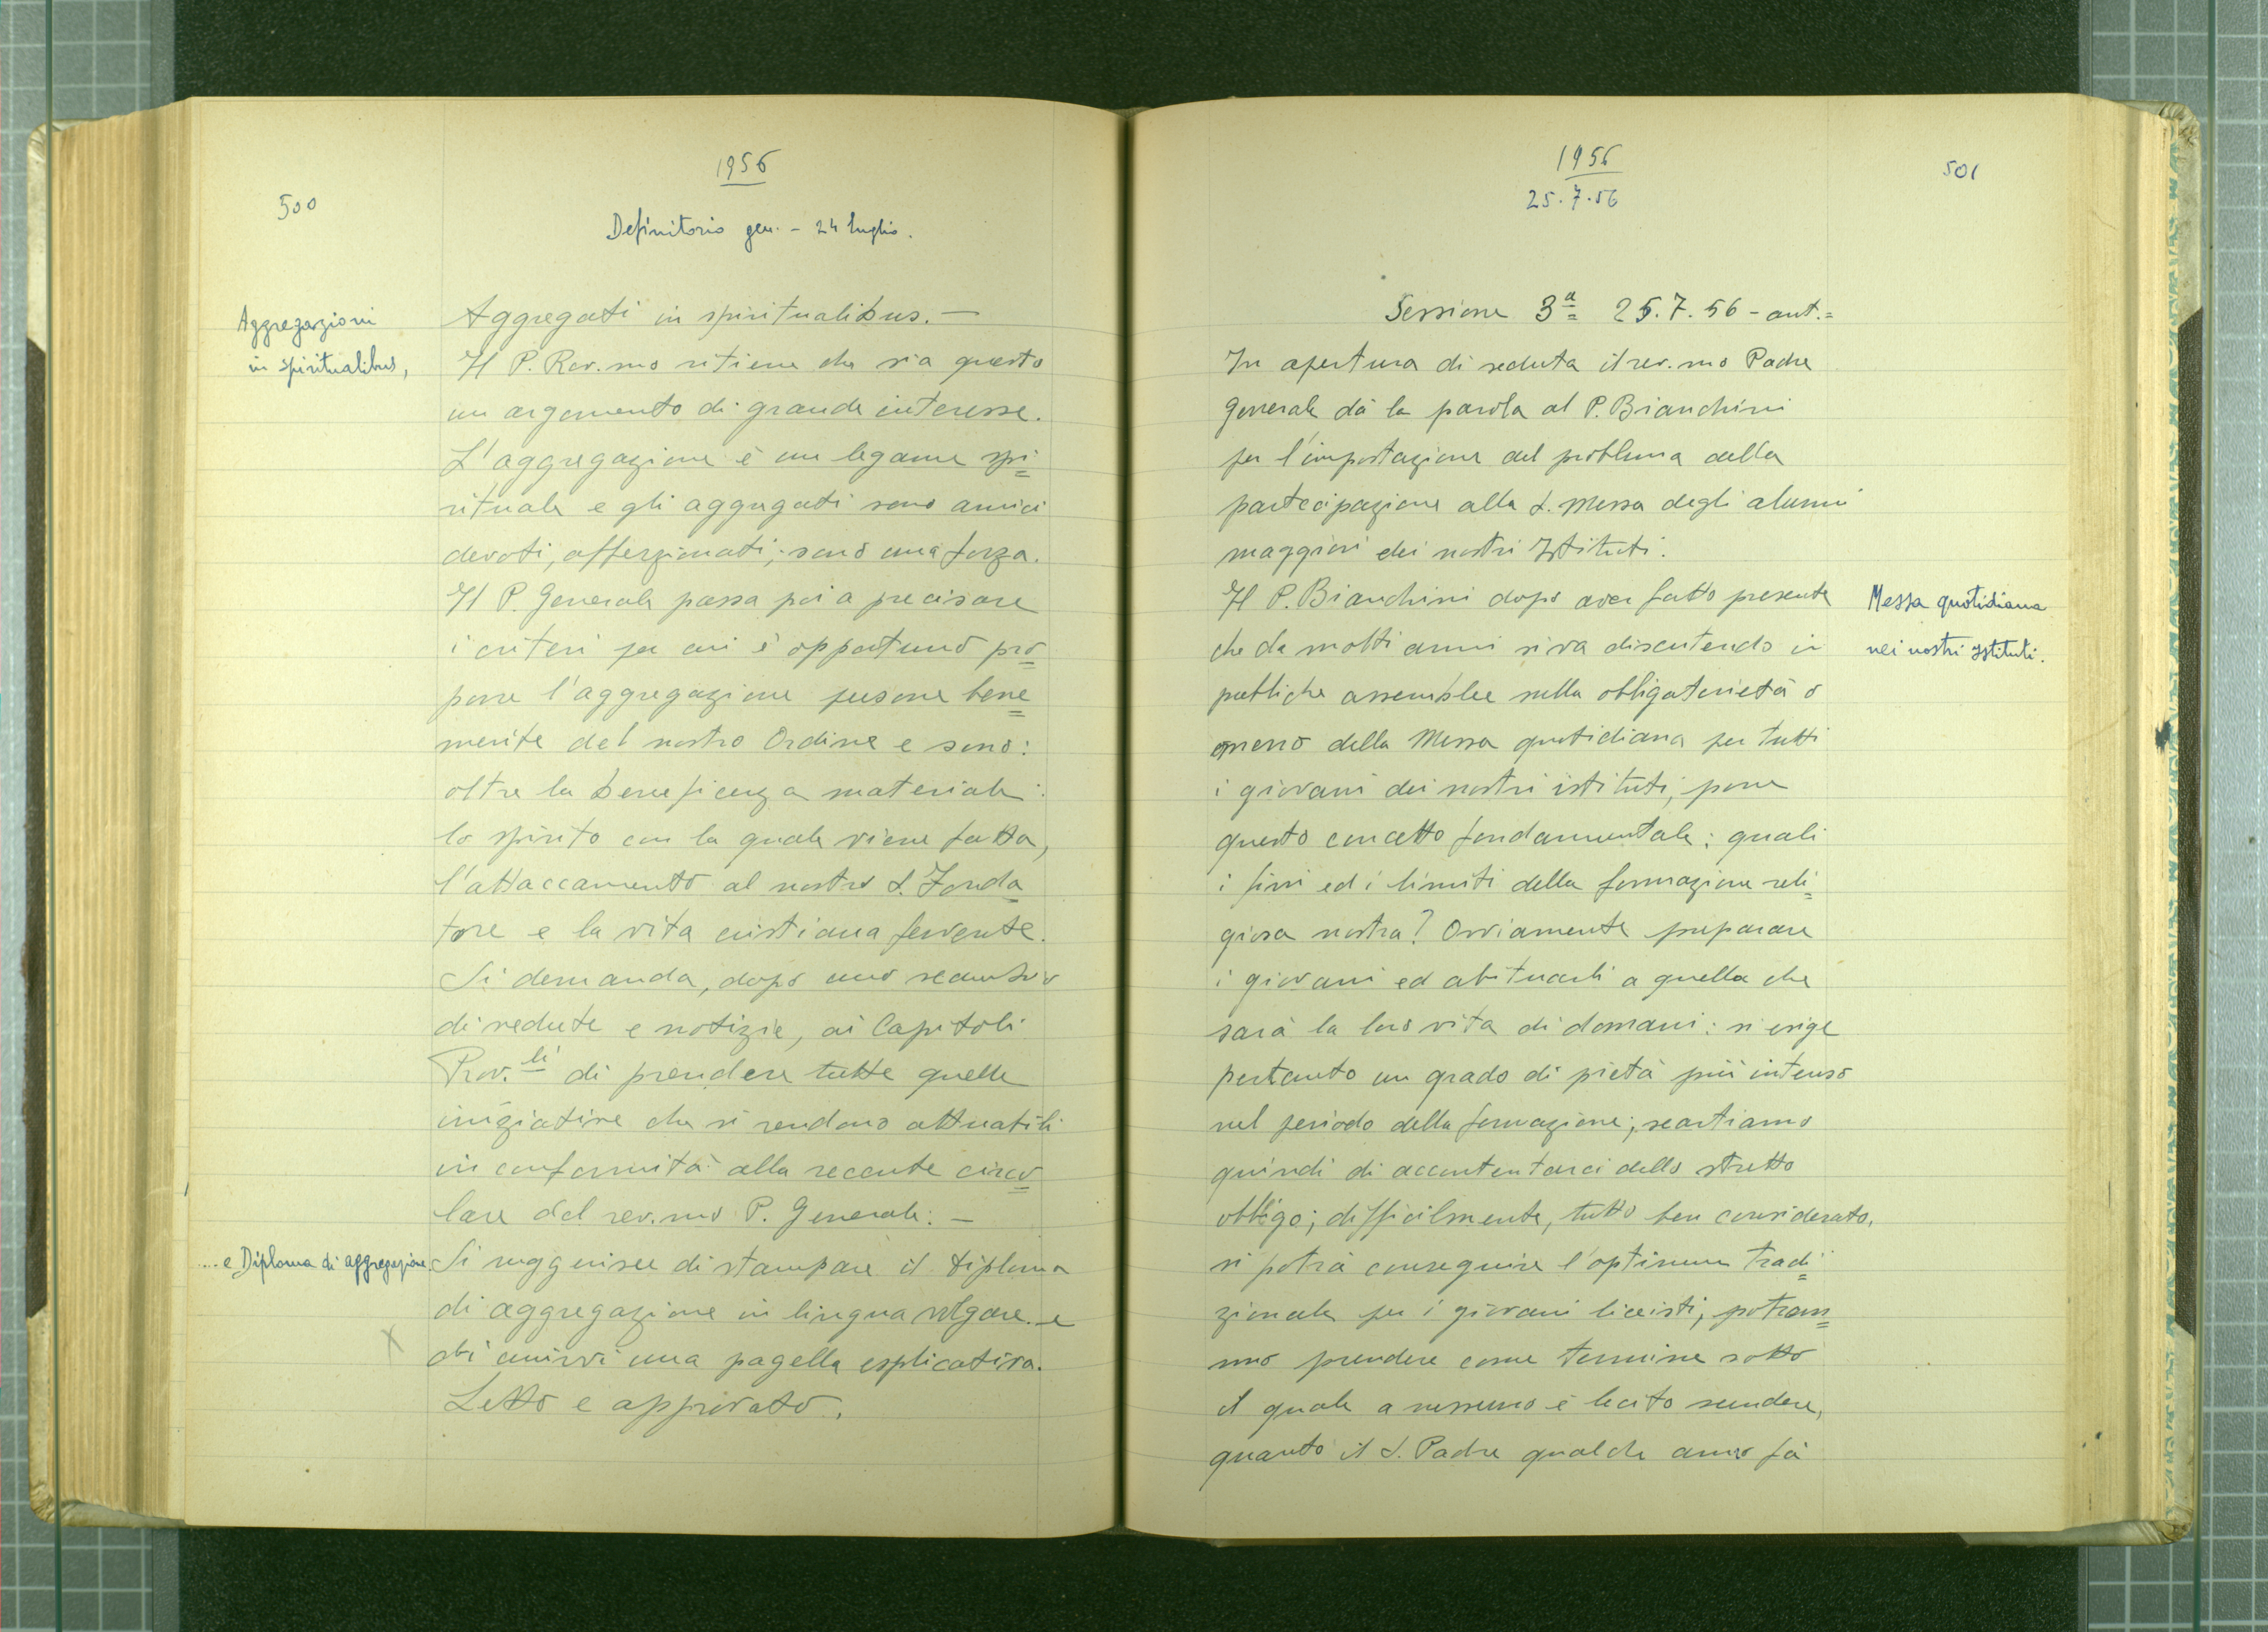 500
1956
Definitorio gen. - 24 luglio.
Aggregazioni
in spiritualibus,
Aggregati in spiritualibus. —
Il P. Rev.mo ritiene che sia questo
un argomento di grande interesse.
L'aggregazione è un legame spi=
rituale e gli aggregati sono amici
devoti, affezionati; sono una forza.
Il P. Generale passa poi a precisare
i criteri per cui è opportuno pro=
porre l'aggregazione persone bene=
merite del nostro Ordine e sono:
oltre la beneficenza materiale:
lo spirito con la quale viene fatta,
l'attaccamento al nostro S. Fonda=
tore e la vita cristiana fervente.
Si demanda, dopo uno scambio
di vedute e notizie, ai Capitoli
Prov.li di prendere tutte quelle
iniziative che si rendono attuabili
in conformità alla recente circo=
lare del rev.mo P. Generale. —
.... e Diploma di aggregazione.
Si suggerisce di stampare il diploma
di aggregazione in lingua volgare e
X
di unirvi una pagella esplicativa.
Letto e approvato.
1956
25.7.56
501
Sessione 3ª 25.7.56 - ant.=
In apertura di seduta il rev.mo Padre
Generale dà la parola al P. Bianchini
per l'impostazione del problema della
partecipazione alla S. Messa degli alunni
maggiori dei nostri Istituti.
Il P. Bianchini dopo aver fatto presente
che da molti anni si va discutendo in
pubbliche assemblee sulla obbligatorietà o
meno della Messa quotidiana per tutti
i giovani dei nostri istituti, pone
questo concetto fondamentale: quali
i fini ed i limiti della formazione reli=
giosa nostra? Ovviamente preparare
i giovani ed abituarli a quella che
sarà la loro vita di domani: si esige
pertanto un grado di pietà più intenso
nel periodo della formazione; scartiamo
quindi di accontentarci dello stretto
obbligo; difficilmente, tutto ben considerato,
si potrà conseguire l'optimum tradi=
zionale per i giovani liceisti; potran=
no prendere come termine sotto
il quale a nessuno è lecito scendere,
quanto il S. Padre qualche anno fà
Messa quotidiana
nei nostri Istituti.